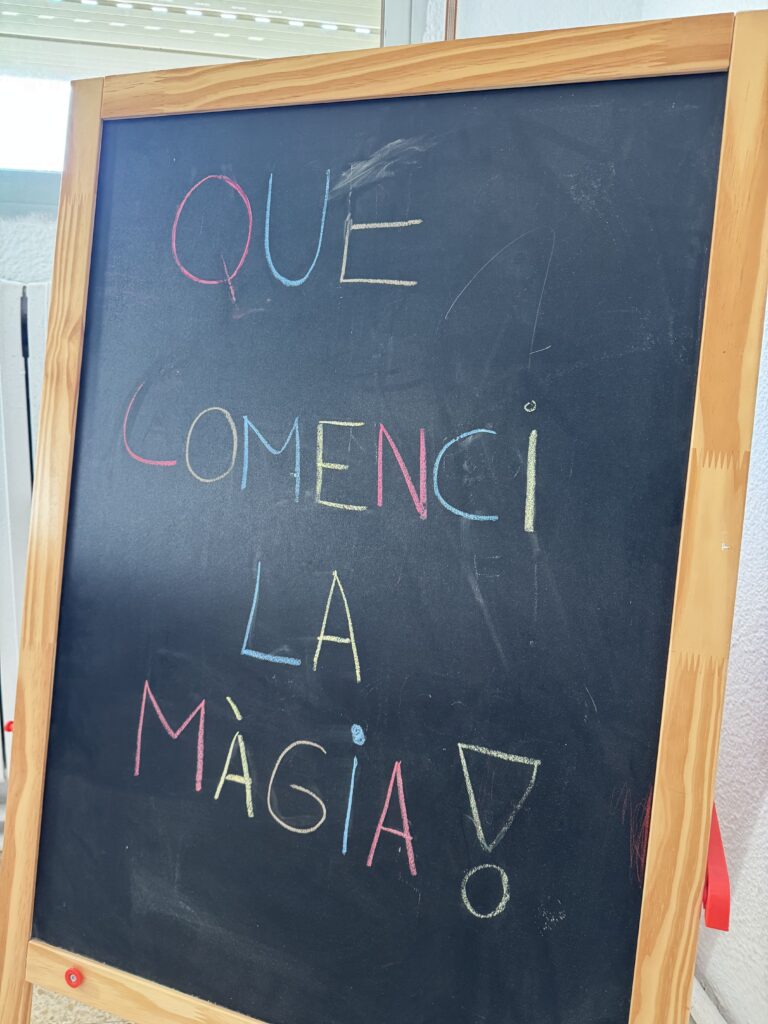 QUE
COMENCi
LA
MÀGiA!